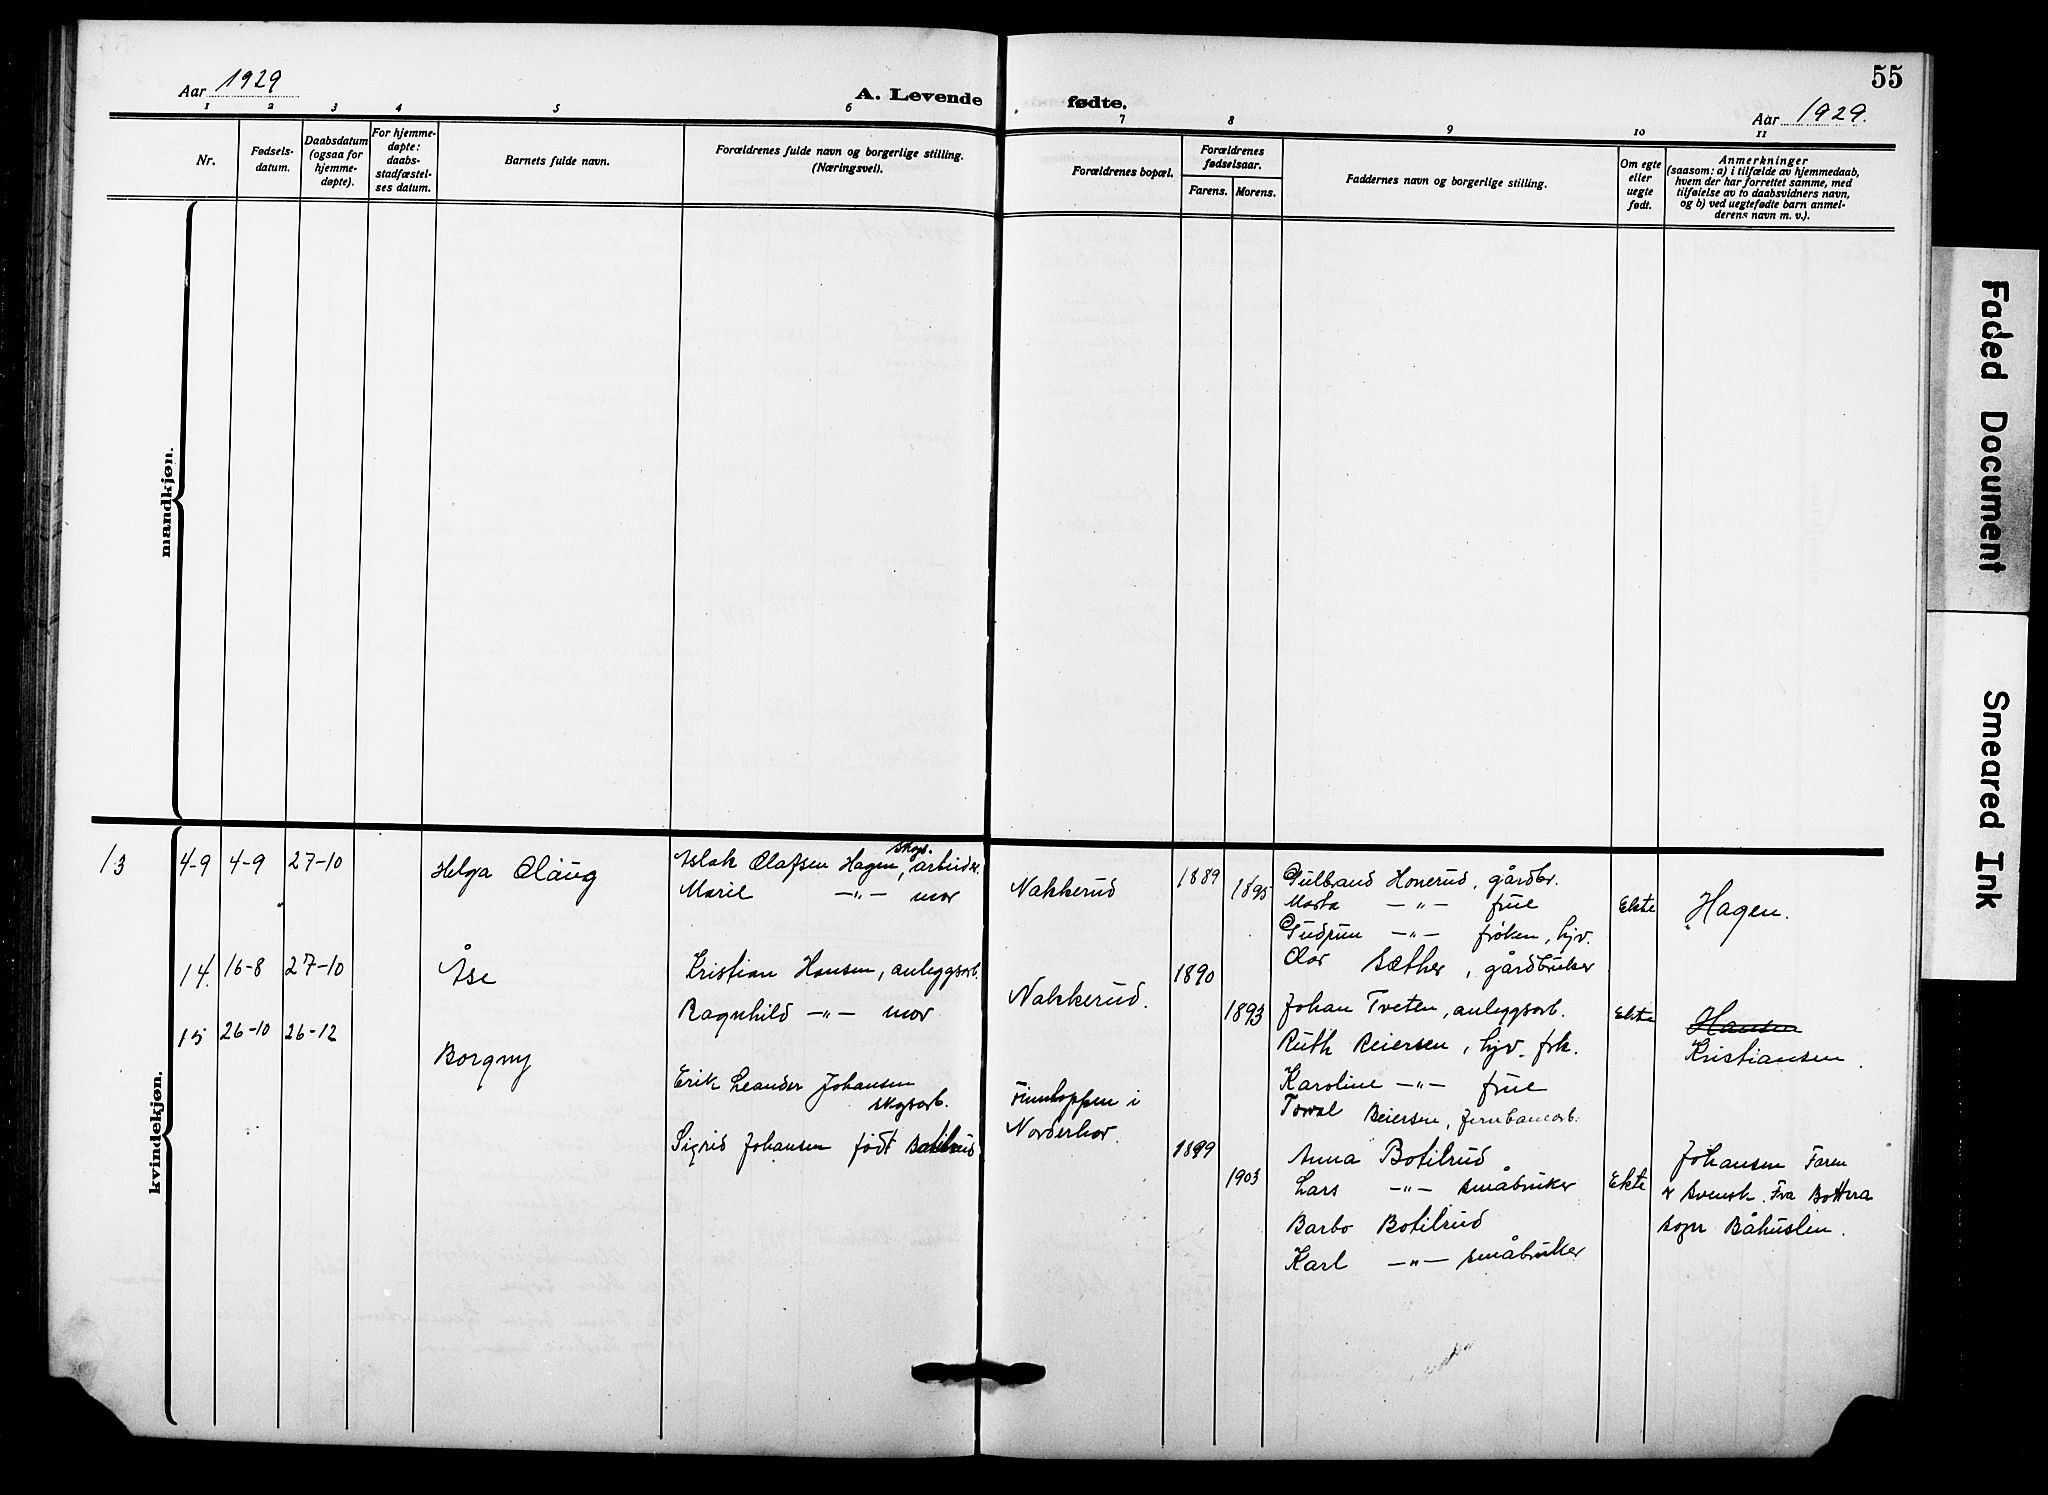 55
Aar 1929
A. Levende fødte.
Aar 1929.
1 2 3 4 5 6 7 8 9 10 11
Nr.
Fødsels-
datum.
Daabsdatum
(ogsaa for
hjemme-
døpte).
For hjemme-
døpte:
daabs-
stadfæstel-
ses datum.
Barnets fulde navn.
Forældrenes fulde navn og borgerlige stilling.
(Næringsvei).
Forældrenes bopæl.
Forældrenes
fødselsaar.
Farens. Morens.
Faddernes navn og borgerlige stilling.
Om egte
eller
uegte
født.
Anmerkninger
(saasom: a) i tilfælde av hjemmedaab,
hvem der har forrettet samme, med
tilføielse av to daabsvidners navn,
og b) ved uegtefødte barn anmel-
derens navn m. v.).
mandkjøn.
kvindekjøn.
13 4-9 4-9 27-10
Helga Olaug
Aslak Olafsen Hagen, skogs.arbeider
Marie —"— mor
Nakkerud
1889
1895
Gulbrand Honerud, gårdbr.
Marta —"— frue
Gudrun —"— frøken, hjv.
Olav Sæther, gårdbruker
Ekte
Hagen.
14. 16-8 27-10
Åse
Kristian Hansen, anleggsarb.
Ragnhild —"— mor
Nakkerud.
1890
1893
Johan Tveten, anleggsarb.
Ruth Reiersen, hjv. frk.
Karoline —"— frue
Torval Reiersen, jernbanearb.
Ekte
Hansen
Kristiansen.
15 26-10 26-12
Borgny
Erik Leander Johansen
skogsarb.
Sigrid Johansen født Botilrud
Finntoppen i
Norderhov.
1899
1903
Anna Botilrud
Lars —"— småbruker
Barbo Botilrud
Karl —"— småbruker
Ekte
Johansen Faren
er svensk. Fra Bottna
sogn Båhuslen.
Faded Document
Smeared Ink